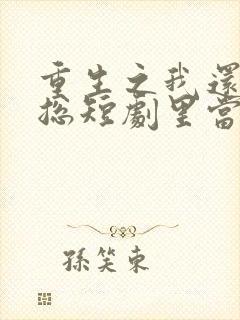 重生之我還
總短劇里當
孫笑東